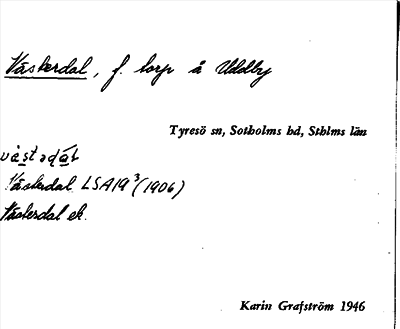 Västerdal, f. torp å Uddby
Tyresö sn, Sotholms hd, Sthlms län
Västerdal LSA19³ (1906)
Västerdal ek.
Karin Grafström 1946